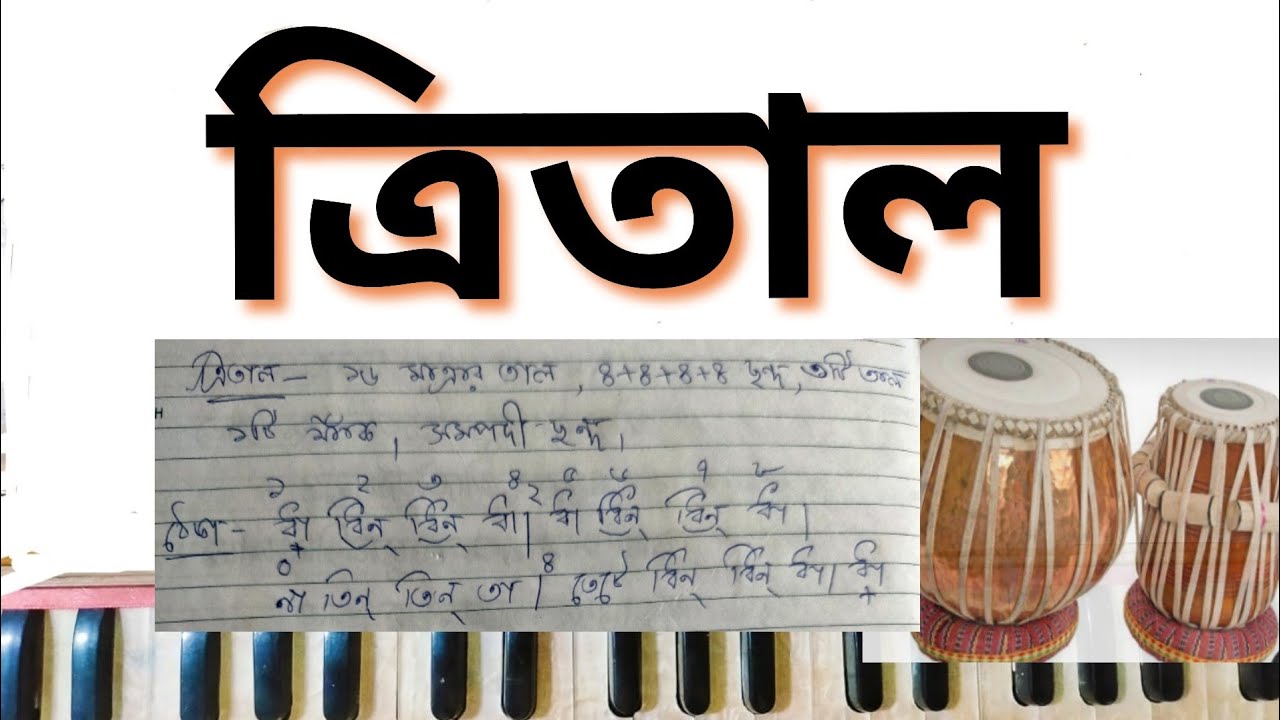 ত্রিতাল
ত্রিতাল – ১৬ মাত্রার তাল, ৪+৪+৪+৪ ছন্দ, ৩টি তাল
১টি ফাঁক, সমপদী ছন্দ।
১ ২ ৩ ৪ ২ ৫ ৬ ৭ ৮
ঠেকা – ধা ধিন্ ধিন্ ধা। ধা ধিন্ ধিন্ ধা।
+
০ ৪
না তিন্ তিন্ তা। তেটে ধিন্ ধিন্ ধা। ধা
+